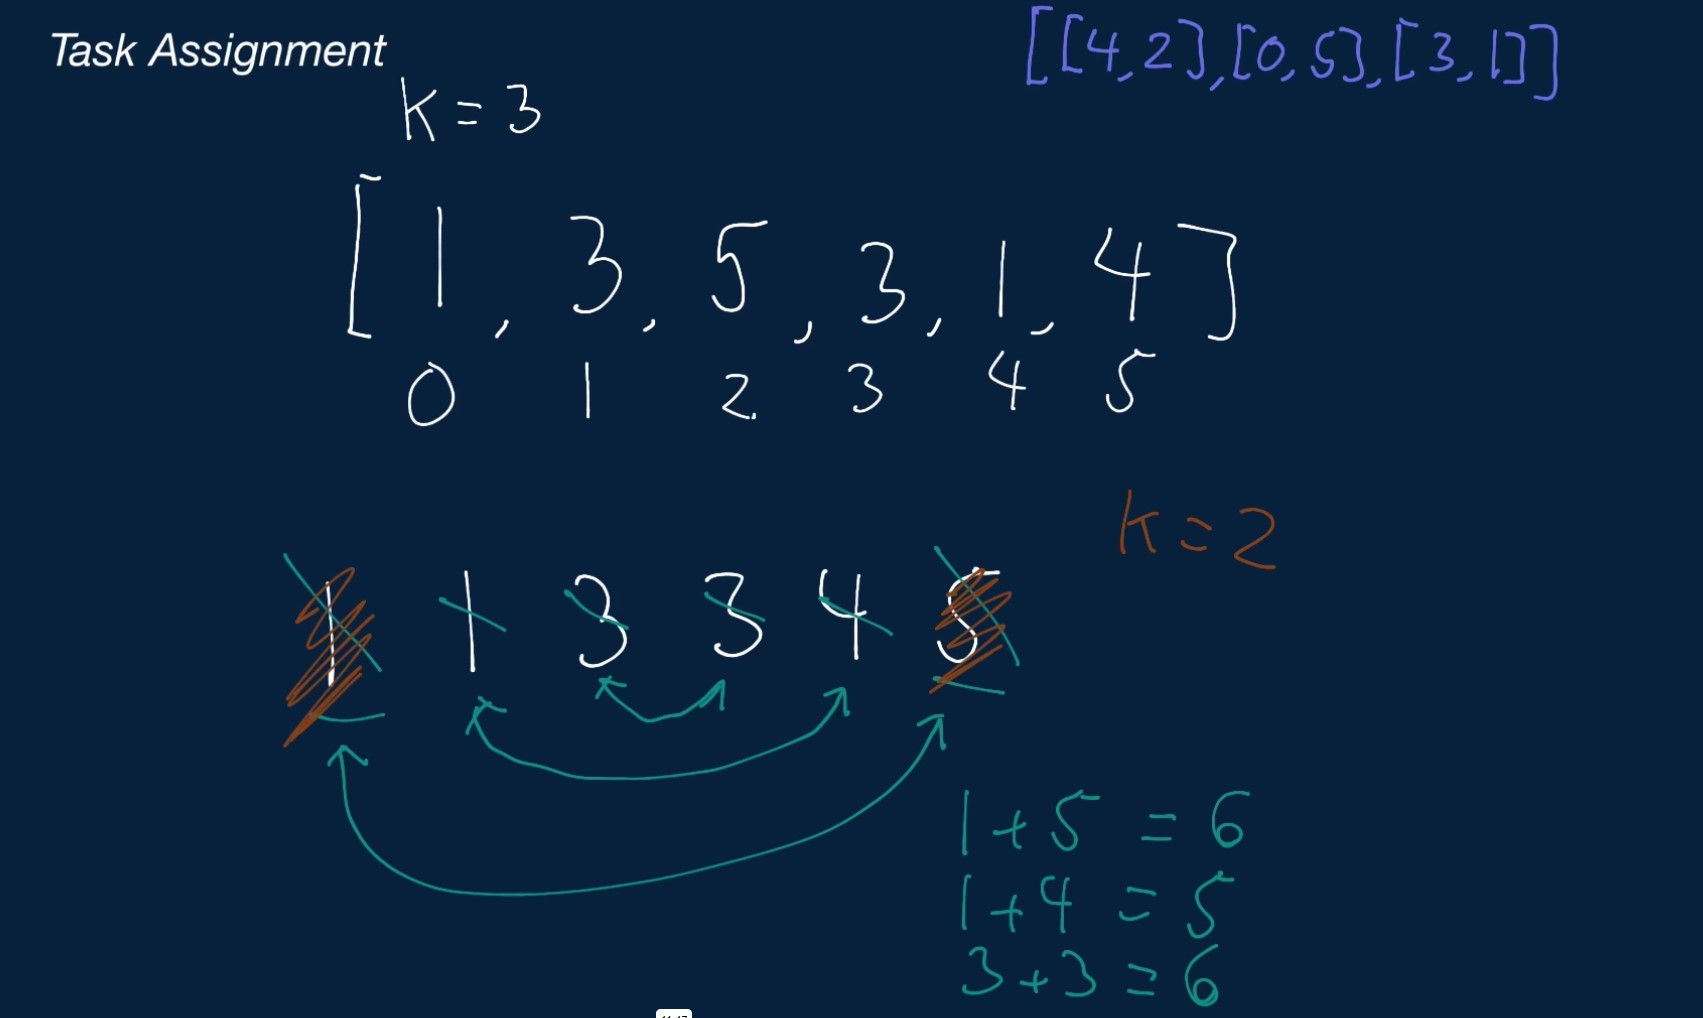 Task Assignment
[[4,2],[0,5],[3,1]]
K = 3
[1, 3, 5, 3, 1, 4]
0 1 2 3 4 5
K = 2
1 1 3 3 4 5
1 + 5 = 6
1 + 4 = 5
3 + 3 = 6